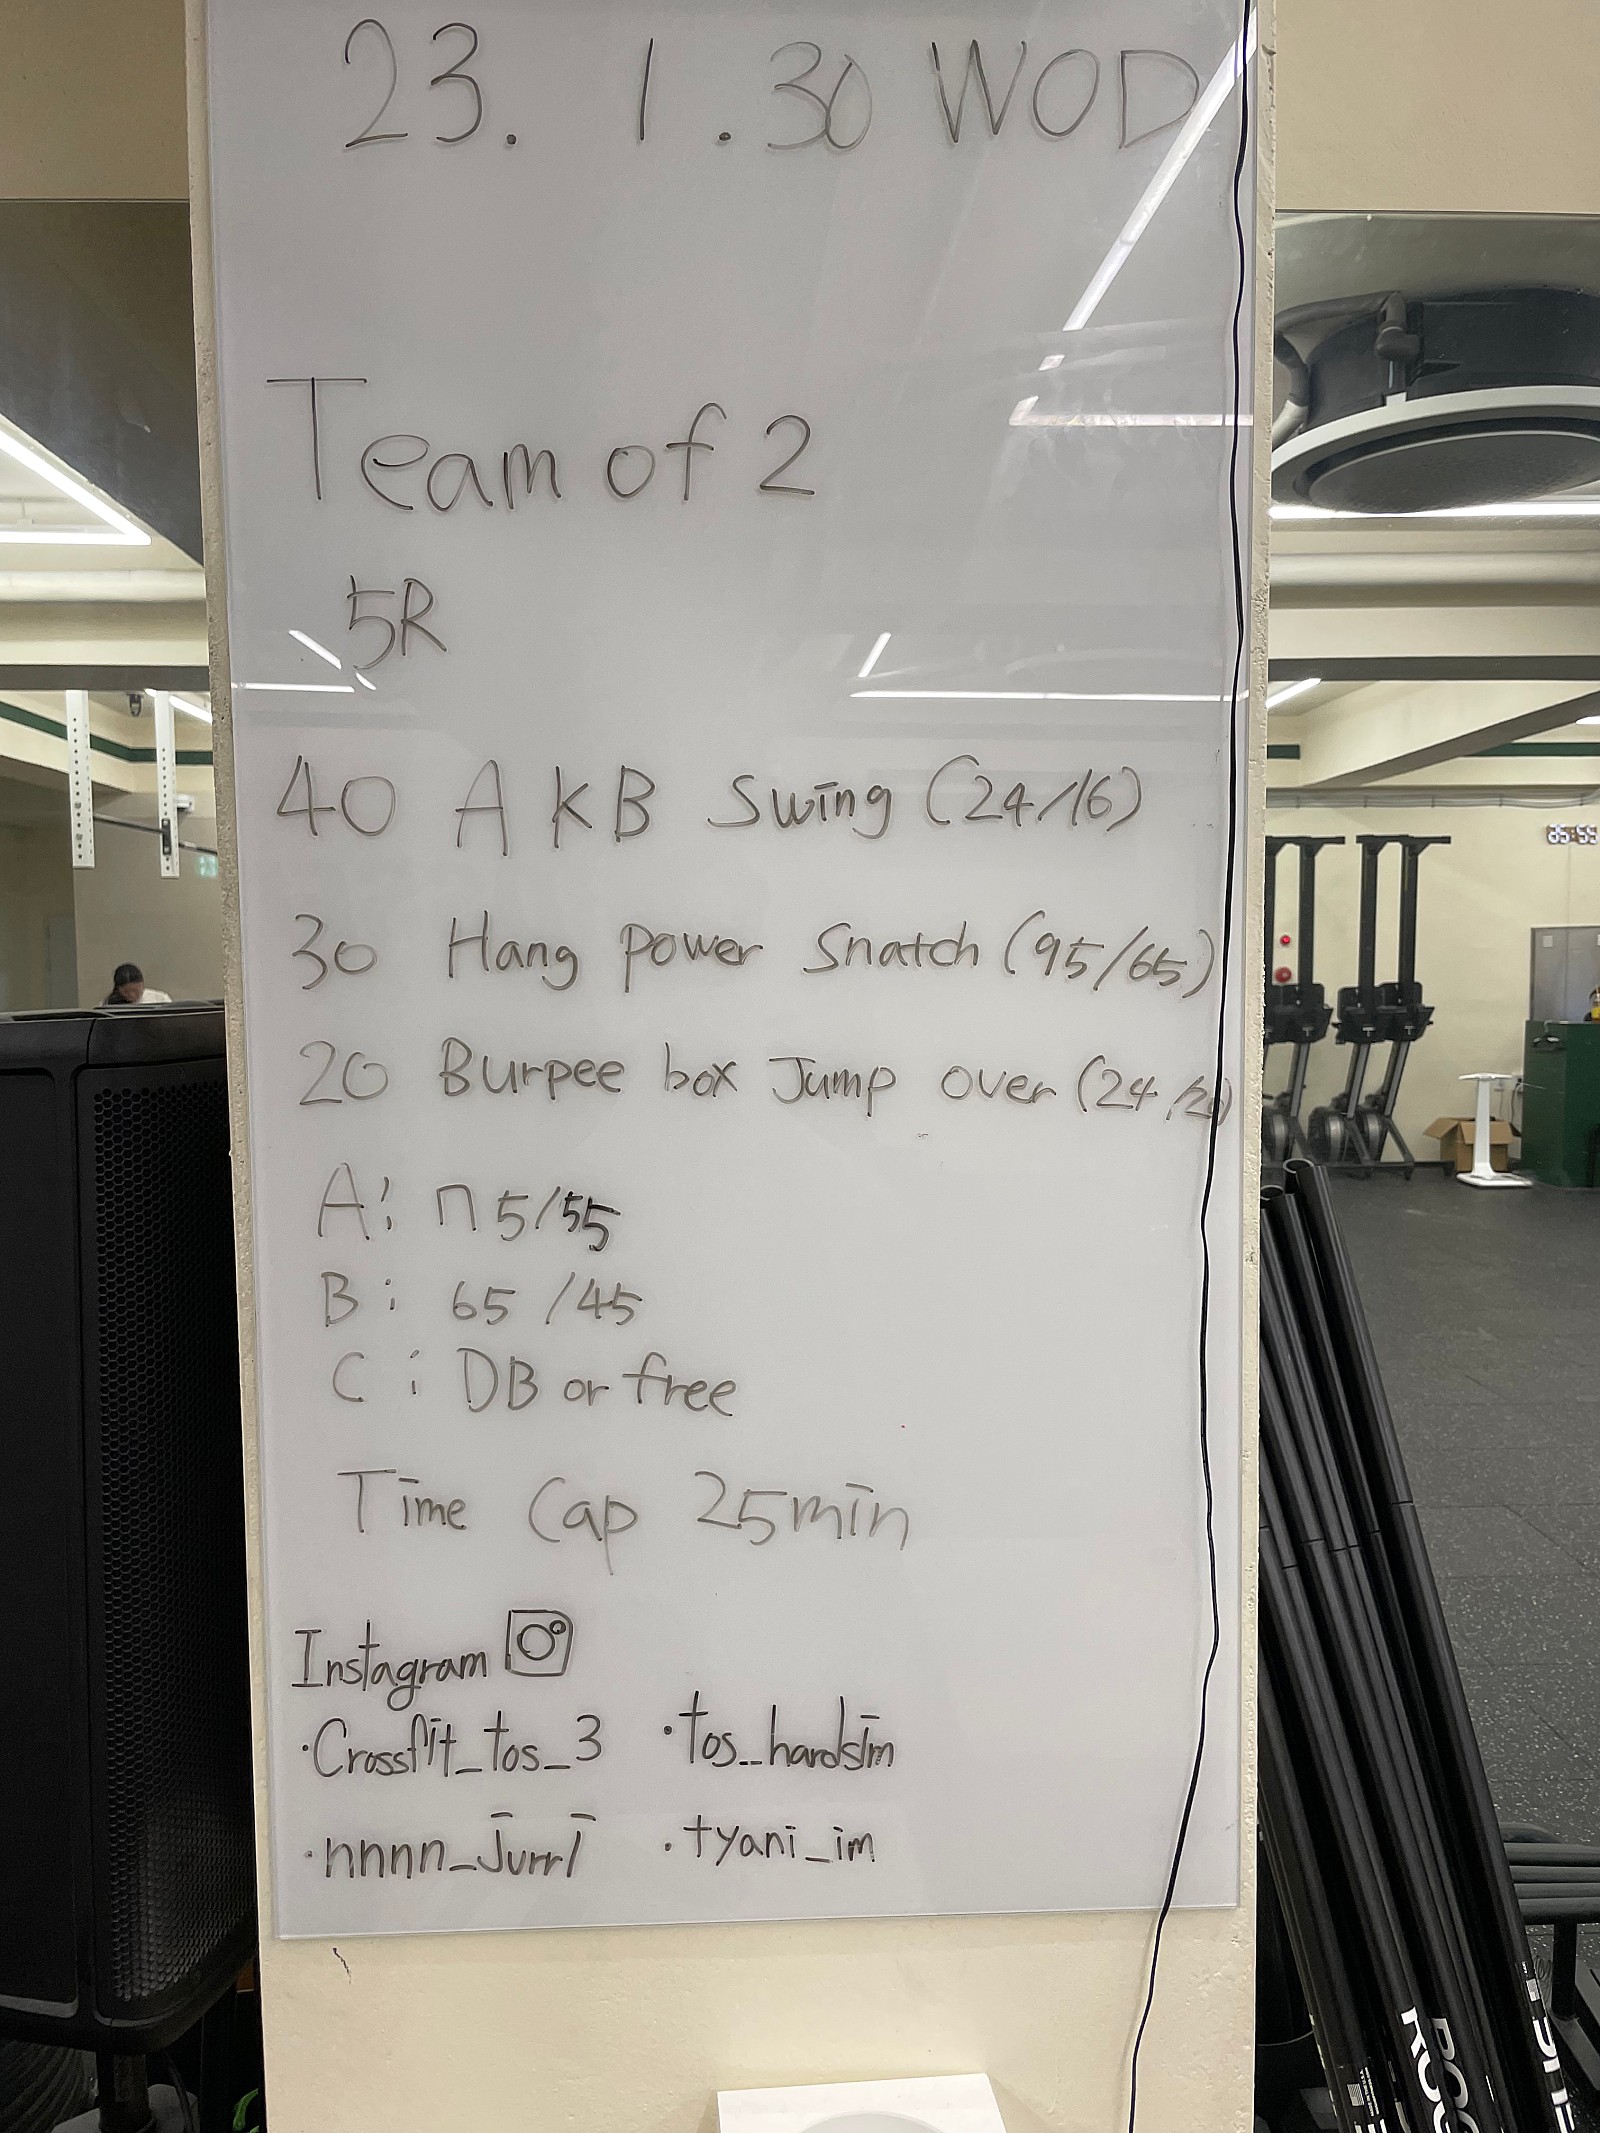 23. 1.30 WOD
Team of 2
5R
40 A KB Swing (24/16)
30 Hang power Snatch (95/65)
20 Burpee box Jump over (24/20)
A: 75/55
B: 65/45
C: DB or free
Time Cap 25min
Instagram
·Crossfit_tos_3 ·tos_hardsim
·nnnn_jurri ·tyani_im